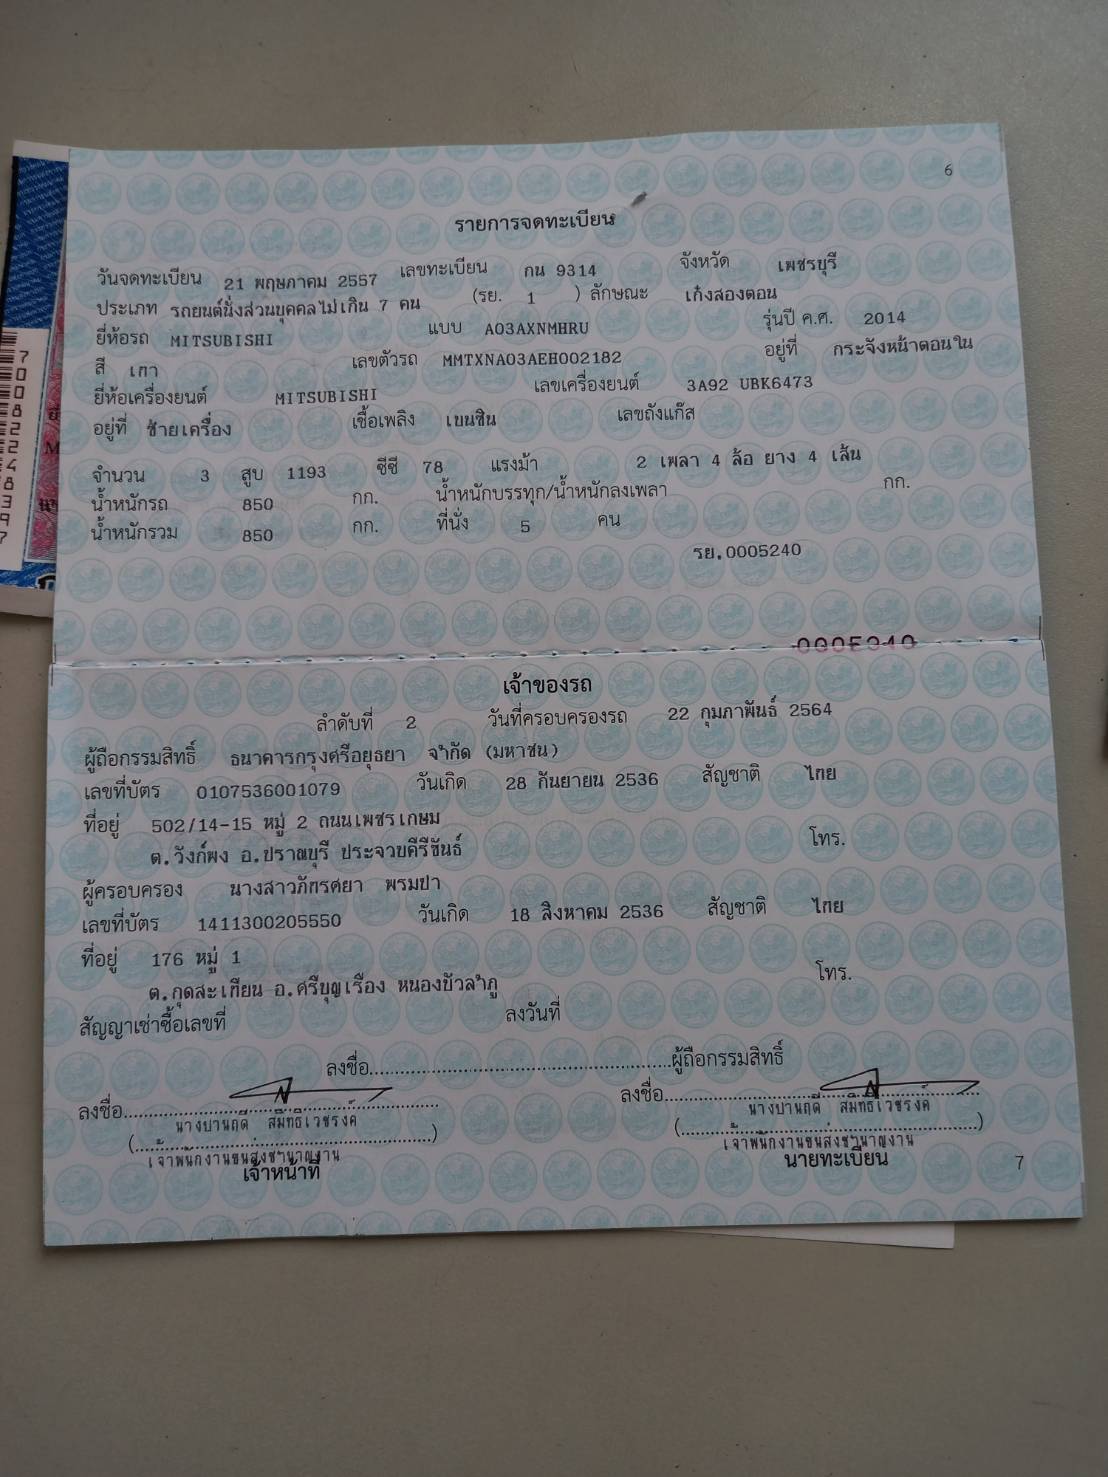 6
รายการจดทะเบียน
วันจดทะเบียน 21 พฤษภาคม 2557 เลขทะเบียน กน 9314 จังหวัด เพชรบุรี
ประเภท รถยนต์นั่งส่วนบุคคลไม่เกิน 7 คน (รย. 1 ) ลักษณะ เก๋งสองตอน
ยี่ห้อรถ MITSUBISHI แบบ A03AXNMHRU รุ่นปี ค.ศ. 2014
สี เทา เลขตัวรถ MMTXNA03AEH002182 อยู่ที่ กระจังหน้าตอนใน
ยี่ห้อเครื่องยนต์ MITSUBISHI เลขเครื่องยนต์ 3A92 UBK6473
อยู่ที่ ซ้ายเครื่อง เชื้อเพลิง เบนซิน เลขถังแก๊ส
จำนวน 3 สูบ 1193 ซีซี 78 แรงม้า 2 เพลา 4 ล้อ ยาง 4 เส้น
น้ำหนักรถ 850 กก. น้ำหนักบรรทุก/น้ำหนักลงเพลา กก.
น้ำหนักรวม 850 กก. ที่นั่ง 5 คน
รย.0005240
0005240
เจ้าของรถ
ลำดับที่ 2 วันที่ครอบครองรถ 22 กุมภาพันธ์ 2564
ผู้ถือกรรมสิทธิ์ ธนาคารกรุงศรีอยุธยา จำกัด (มหาชน)
เลขที่บัตร 0107536001079 วันเกิด 28 กันยายน 2536 สัญชาติ ไทย
ที่อยู่ 502/14-15 หมู่ 2 ถนนเพชรเกษม
ต.วังก์พง อ.ปราณบุรี ประจวบคีรีขันธ์ โทร.
ผู้ครอบครอง นางสาวภัทรศยา พรมปา
เลขที่บัตร 1411300205550 วันเกิด 18 สิงหาคม 2536 สัญชาติ ไทย
ที่อยู่ 176 หมู่ 1
ต.กุดสะเทียน อ.ศรีบุญเรือง หนองบัวลำภู โทร.
สัญญาเช่าซื้อเลขที่ ลงวันที่
ลงชื่อ........................................ผู้ถือกรรมสิทธิ์
ลงชื่อ........................................ ลงชื่อ........................................
นางปานฤดี สมิทธิเวชรงค์ นางปานฤดี สมิทธิเวชรงค์
(........................................) (........................................)
เจ้าพนักงานขนส่งชำนาญงาน เจ้าพนักงานขนส่งชำนาญงาน
เจ้าหน้าที่ นายทะเบียน
7